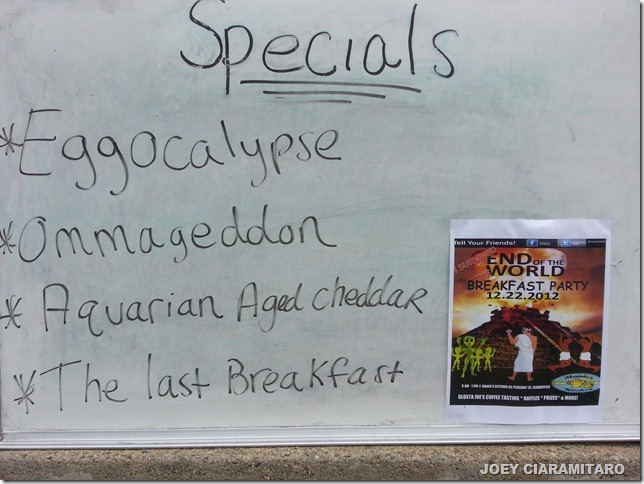 Specials
*Eggocalypse
*Ommageddon
* Aquarian Aged Cheddar
*The last Breakfast
Tell Your Friends!
END OF THE
WORLD
BREAKFAST PARTY
12.22.2012
GLOSTA JOE'S COFFEE TASTING * RAFFLES * PRIZES * & MORE!
JOEY CIARAMITARO